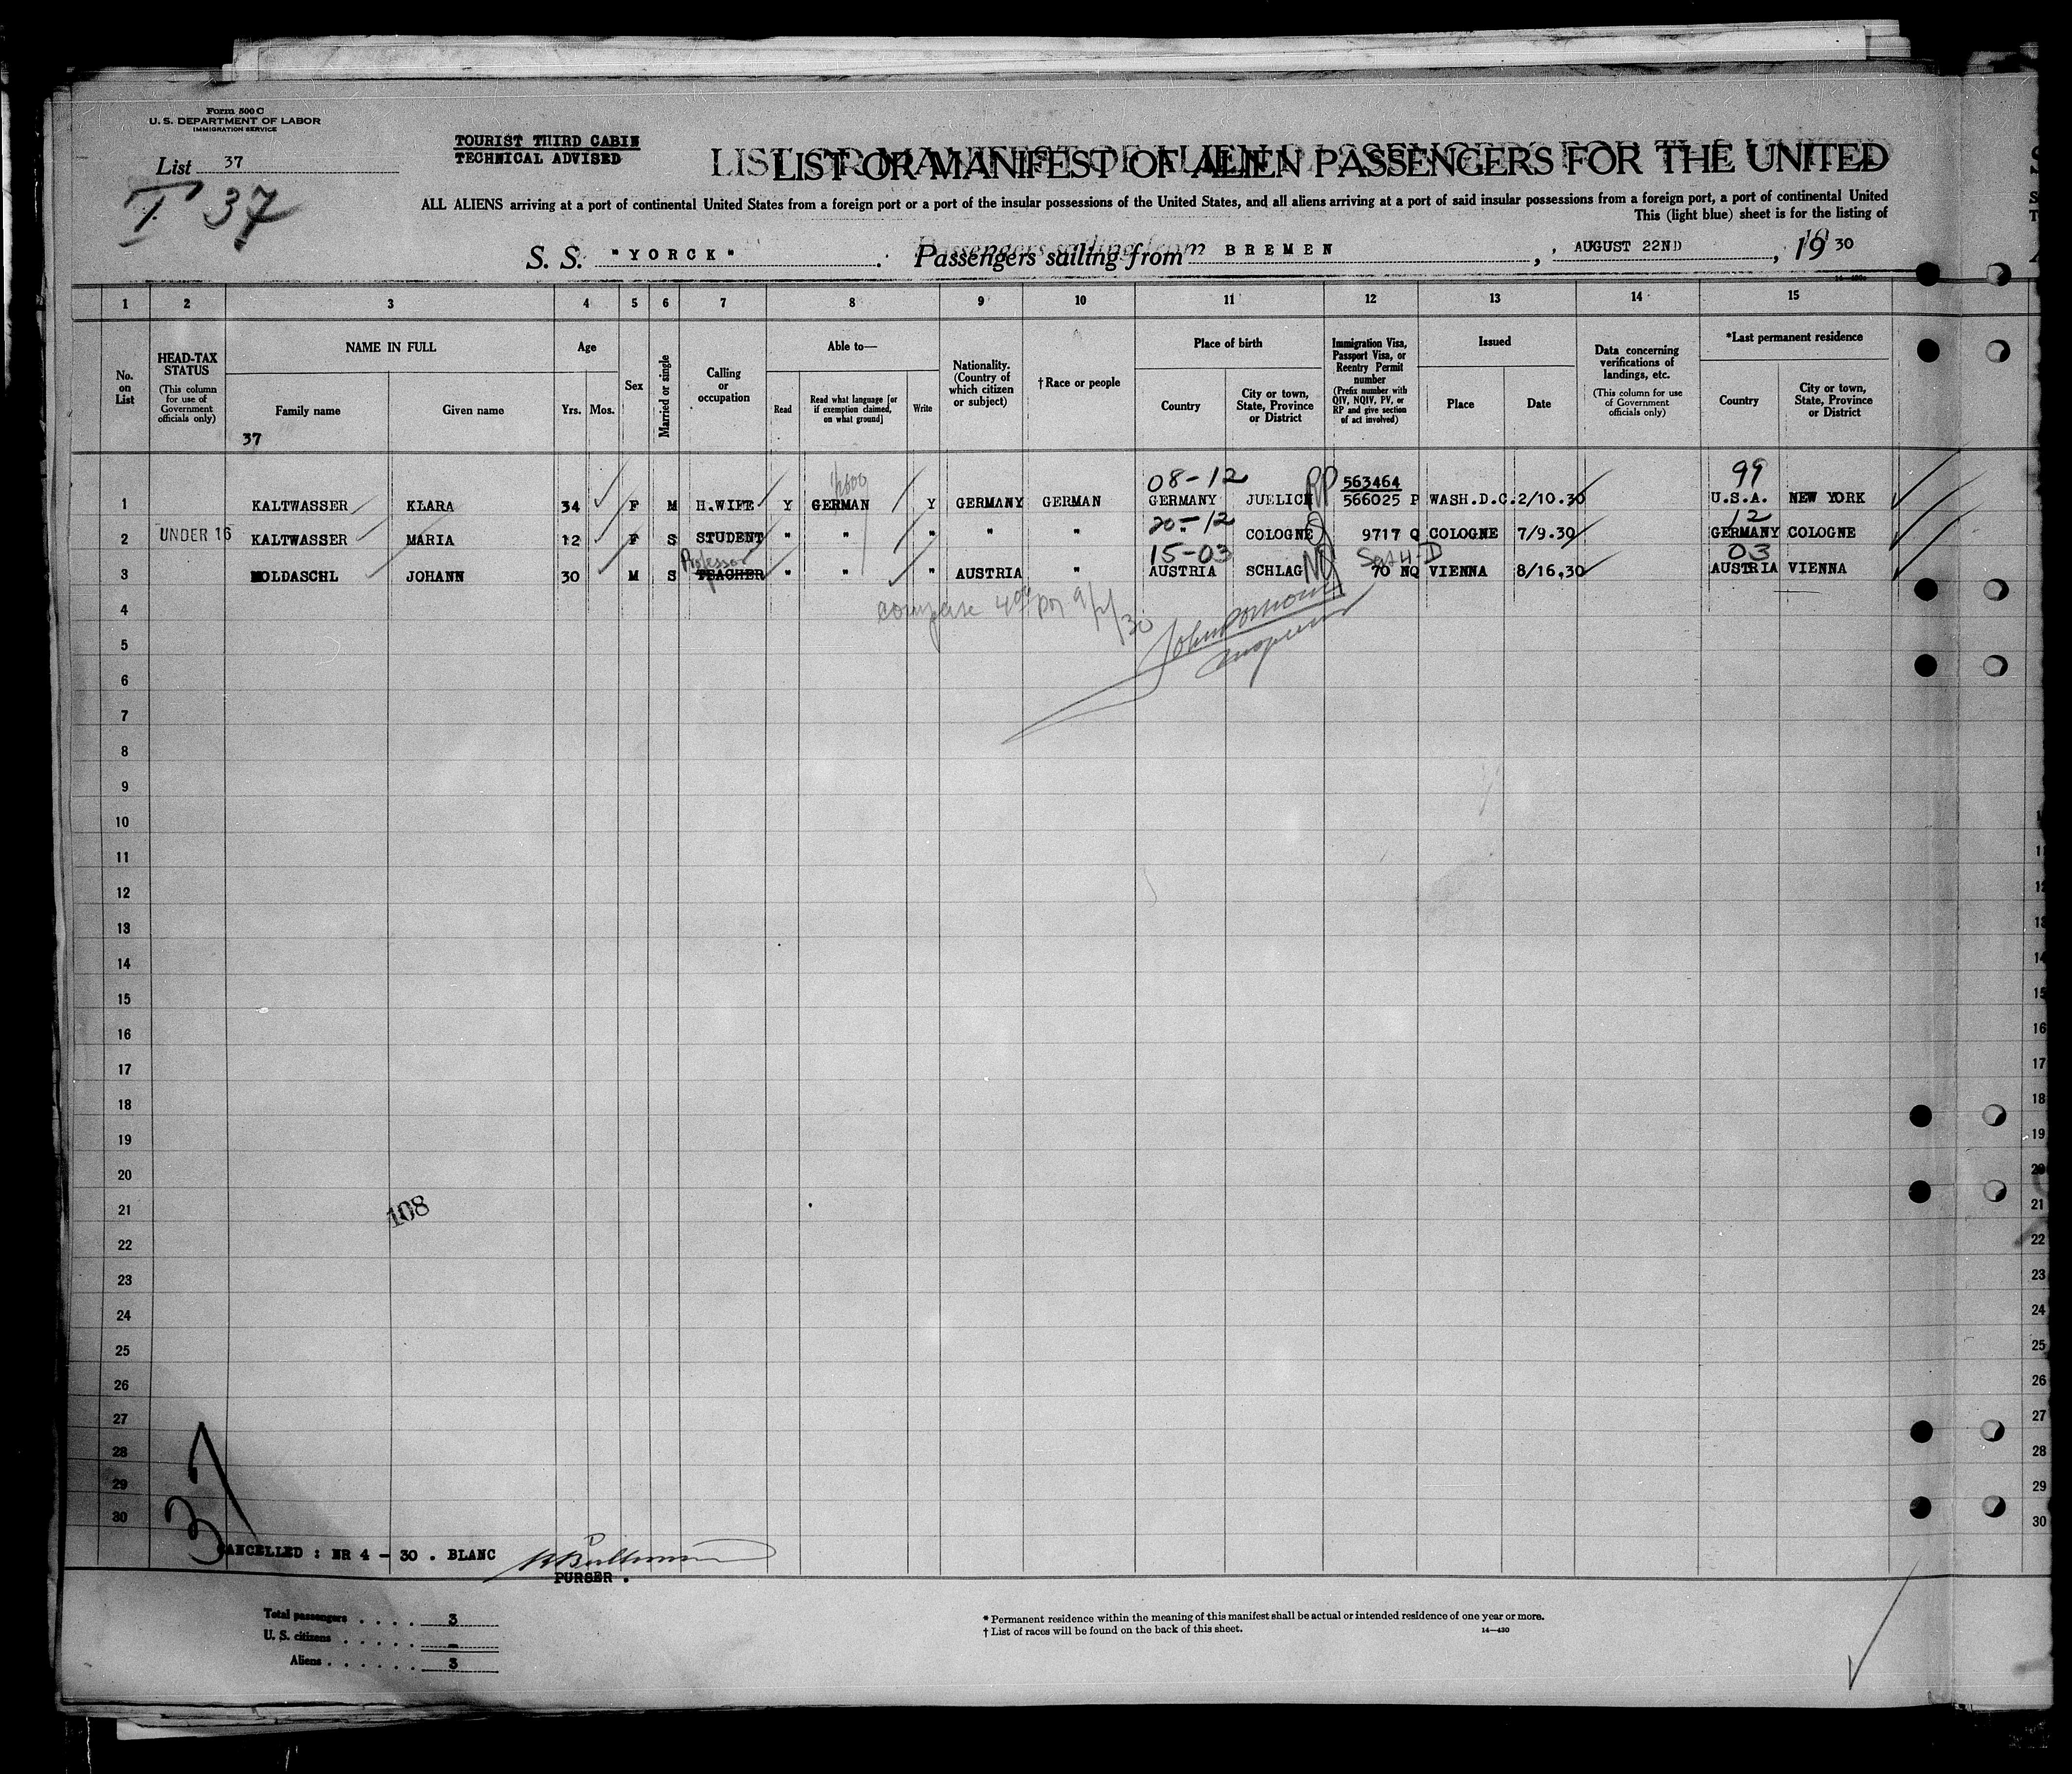 Form 500 C
U. S. DEPARTMENT OF LABOR
IMMIGRATION SERVICE
List 37
T 37
TOURIST THIRD CABIN
TECHNICAL ADVISED
LIST OR MANIFEST OF ALIEN PASSENGERS FOR THE UNITED
ALL ALIENS arriving at a port of continental United States from a foreign port or a port of the insular possessions of the United States, and all aliens arriving at a port of said insular possessions from a foreign port, a port of continental United
This (light blue) sheet is for the listing of
S. S. "YORCK" . Passengers sailing from BREMEN , AUGUST 22ND , 19 30
1 2 3 4 5 6 7 8 9 10 11 12 13 14 15
No. on List
HEAD-TAX STATUS
(This column for use of Government officials only)
NAME IN FULL
Family name
Given name
37
Age
Yrs. Mos.
Sex
Married or single
Calling or occupation
Able to—
Read
Read what language [or if exemption claimed, on what ground]
Write
Nationality. (Country of which citizen or subject)
† Race or people
Place of birth
Country
City or town, State, Province or District
Immigration Visa, Passport Visa, or Reentry Permit number
(Prefix number with QIV, NQIV, PV, or RP and give section of act involved)
Issued
Place
Date
Data concerning verifications of landings, etc.
(This column for use of Government officials only)
*Last permanent residence
Country
City or town, State, Province or District
08-12 RP 563464 99
1 KALTWASSER KLARA 34 F M H.WIFE Y GERMAN Y GERMANY GERMAN GERMANY JUELICH 566025 P WASH.D.C. 2/10.30 U.S.A. NEW YORK
20-12 12
2 UNDER 16 KALTWASSER MARIA 12 F S STUDENT " " " " " COLOGNE 9717 Q COLOGNE 7/9.30 GERMANY COLOGNE
Professor 15-03 NQ 03
3 MOLDASCHL JOHANN 30 M S TEACHER " " " AUSTRIA " AUSTRIA SCHLAG 70 NQ VIENNA 8/16.30 AUSTRIA VIENNA
4
5
6
7
8
9
10
11
12
13
14
15
16
17
18
19
20
21
108
22
23
24
25
26
27
28
29
30
37
CANCELLED : NR 4 - 30 . BLANC
PURSER .
Total passengers . . . . 3
U. S. citizens . . . . . -
Aliens . . . . . . 3
* Permanent residence within the meaning of this manifest shall be actual or intended residence of one year or more.
† List of races will be found on the back of this sheet.
14—430